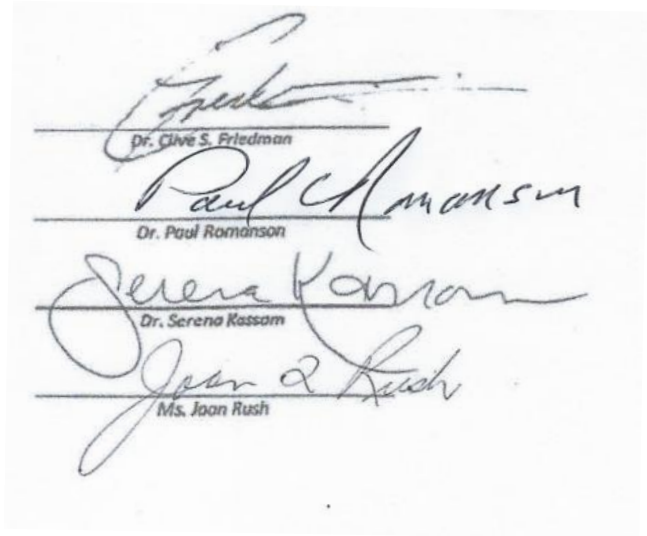 Dr. Clive S. Friedman
Paul Romanson
Dr. Paul Romanson
Serena Kassam
Dr. Serena Kassam
Joan Rush
Ms. Joan Rush